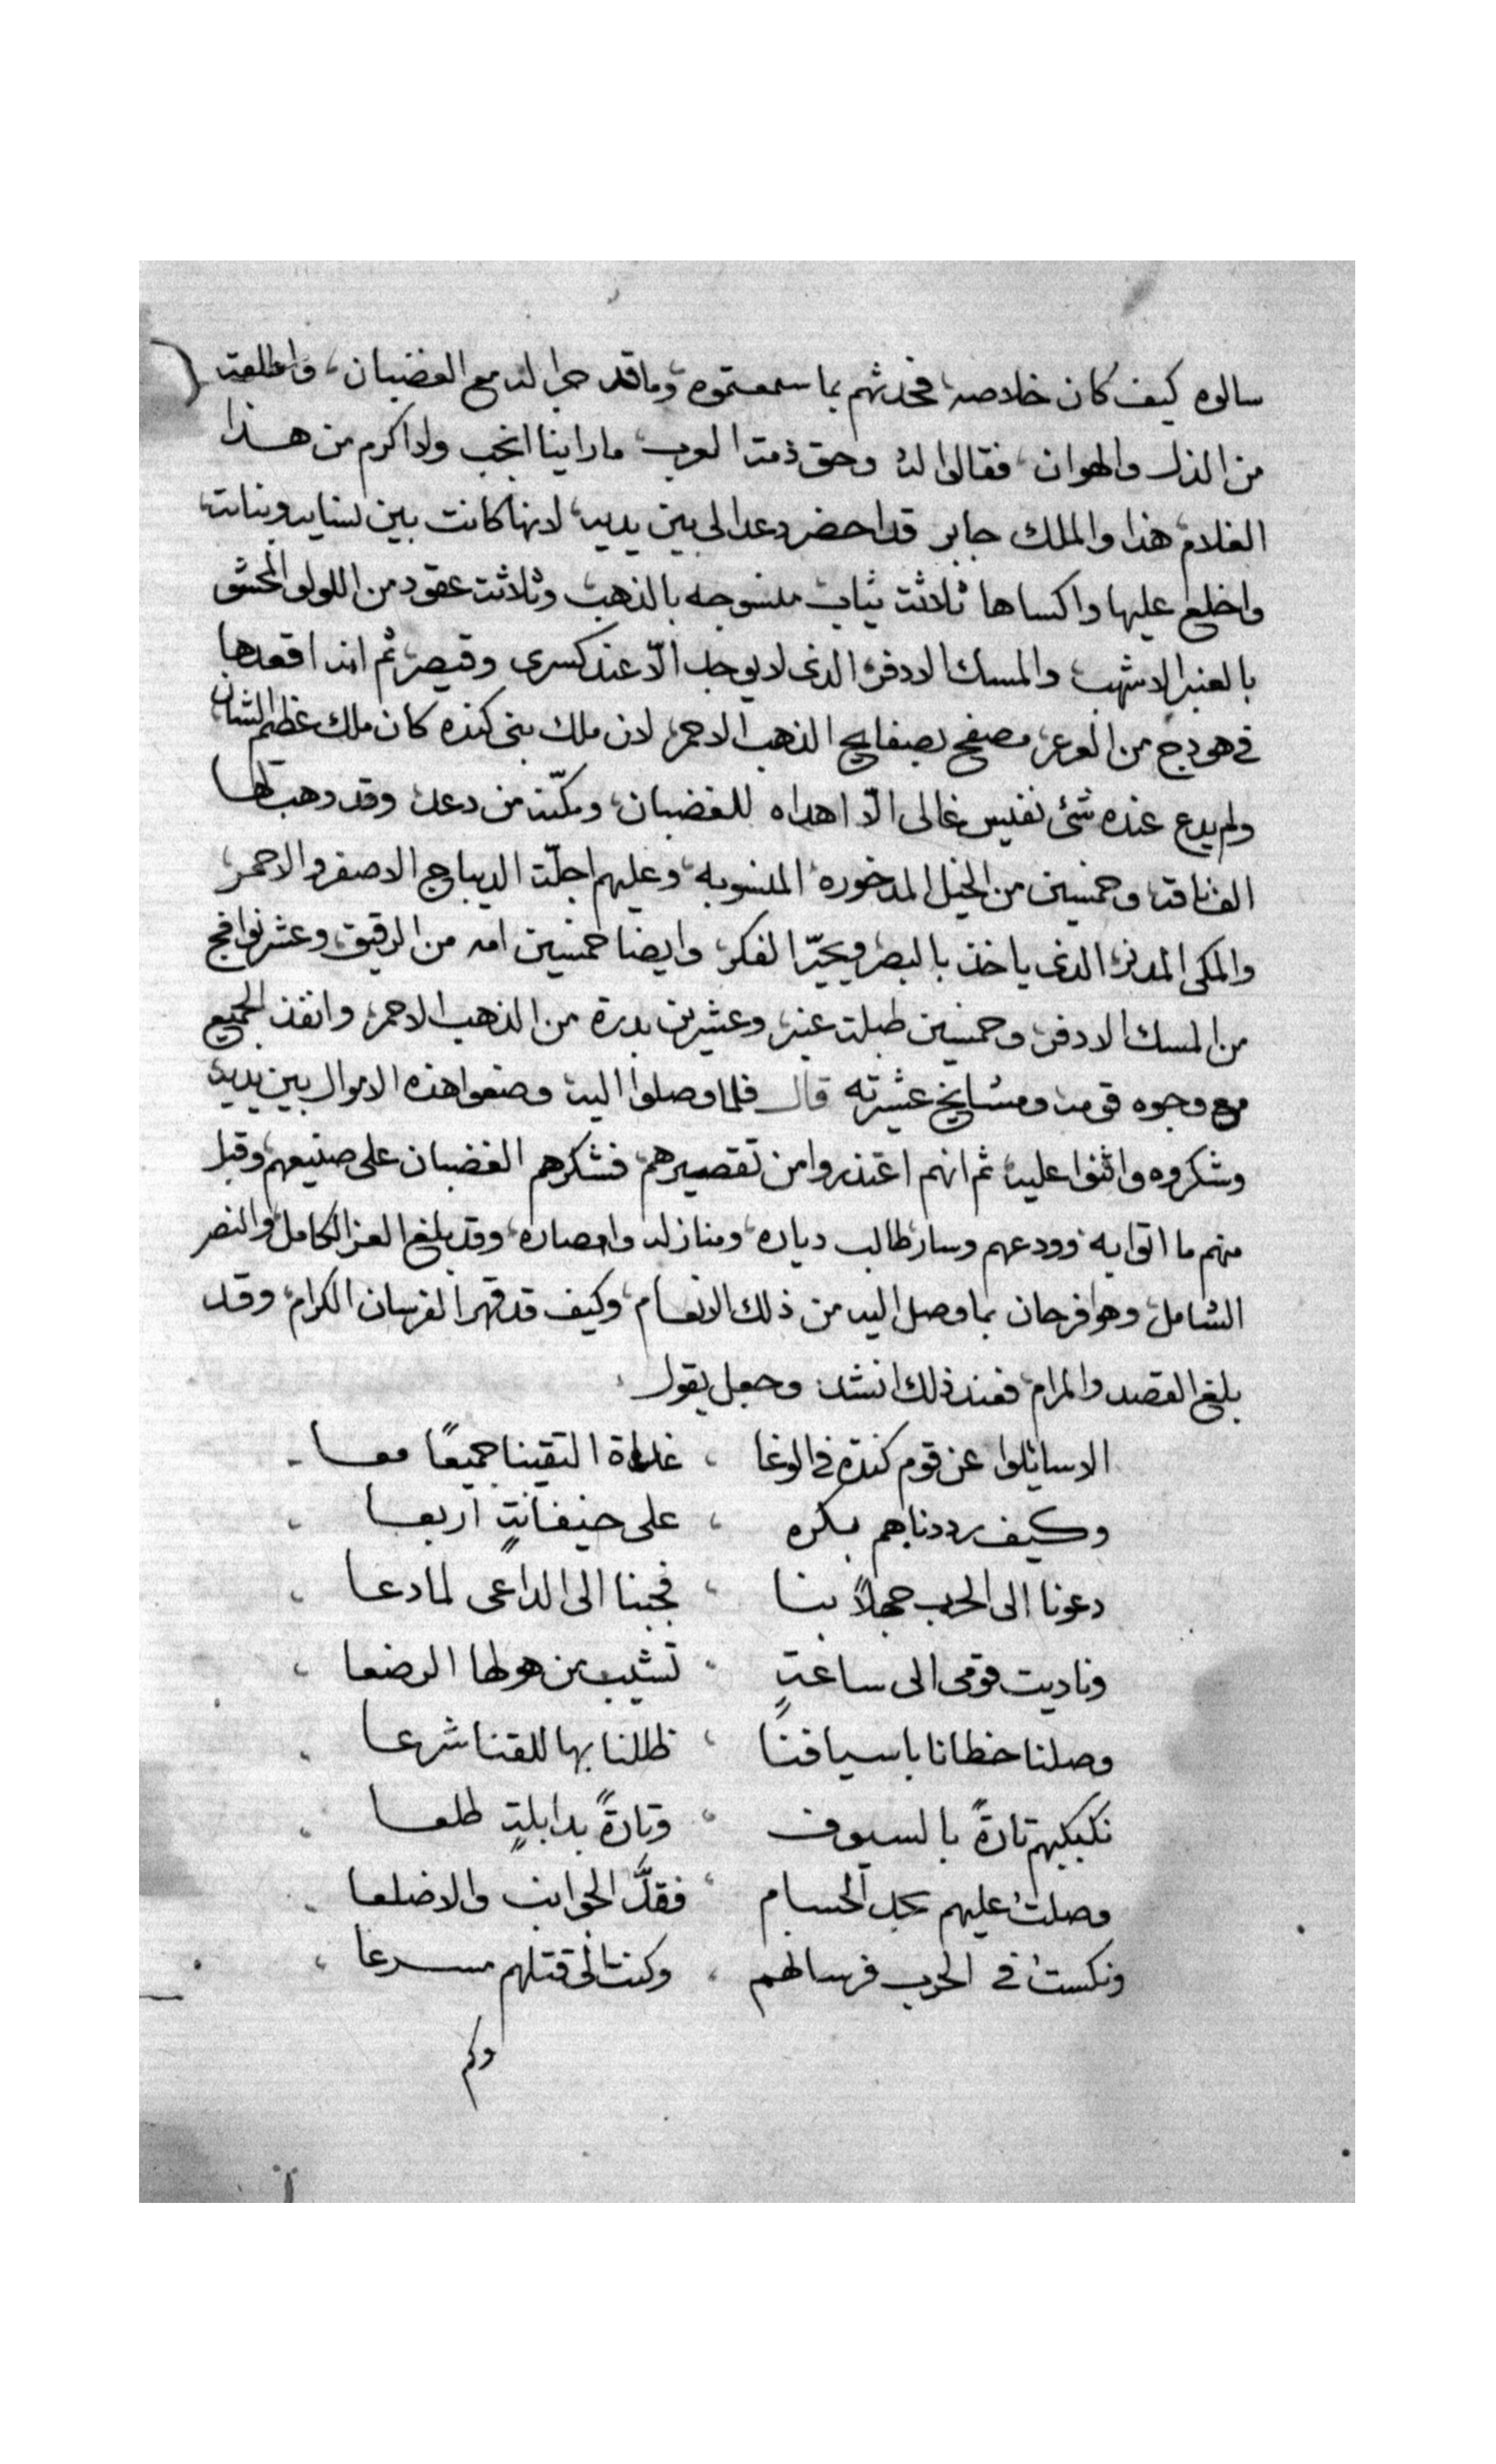 سالوه كيف كان خلاصه، فحدثهم بما سمعتموه، وما قد جرا له مع الغضبان، واطلقه
من الذل والهوان، فقالوا له وحق ذمة العرب ما راينا انجب ولا اكرم من هذا
الغلام، هذا والملك جابر قد احضر دعد الى بين يديه، لانها كانت بين نسايه وبناته،
واخلع عليها واكساها ثلاثة ثياب منسوجه بالذهب وثلاثة عقود من اللولو المحشو
بالعنبر الاشهب، والمسك الادفر، الذى لا يوجد الّا عند كسرى وقيصر، ثم انه اقعدها
فى هودج من العرعر، مصفح بصفايح الذهب الاحمر، لان ملك بنى كنده كان ملك عظيم الشان
ولم يدع عنده شئ نفيس غالى الّا اهداه للغضبان، ومكّنه من دعد، وقد وهب لها
الف ناقه، وخمسين من الخيل المدخوره المنسوبه، وعليهم اجلّة الديباج الاصفر والاحمر،
والمكى المدنر، الذى ياخذ بالبصر، ويحيّر الفكر، وايضا خمسين امه من الرقيق، وعشر نوافج
من المسك الادفر، وخمسين طبلة عنبر، وعشرين بدرة من الذهب الاحمر، وانفذ الجميع
مع وجوه قومه ومشايخ عشيرته قال فلما وصلوا اليه وضعوا هذه الاموال بين يديه
وشكروه واثنوا عليه، ثم انهم اعتذروا من تقصيرهم، فشكرهم الغضبان على صنيعهم، وقبل
منهم ما اتوا به وودعهم وسار طالب دياره، ومنازله وامصاره، وقد بلغ العز الكامل، والنصر
الشامل، وهو فرحان بما وصل اليه من ذلك الانعام، وكيف قد قهر الفرسان الكرام، وقد
بلغ القصد والمرام، فعند ذلك انشد وجعل يقول
الا سائلوا عن قوم كندة فى الوغا ، غداة التقينا جميعًا معا
وكيف رددناهم بكره ، على حنيفانةٍ اربعا
دعونا الى الحرب جهلًا بنا ، فجبنا الى الداعى لما دعا
وناديت قومى الى ساعةٍ ، تشيب من هولها الرضعا
وصلنا خطانا باسيافنا ، ظللنا بها للقنا شرعا
نكبكبهم تارةً بالسيوف ، وتارةً بدابلةٍ طلعا
وصلت عليهم بحد الحسام ، فقدَّ الجوانب والاضلعا
ونكست فى الحرب فرسانهم ، وكنت فى قتلهم مسرعا
وكم